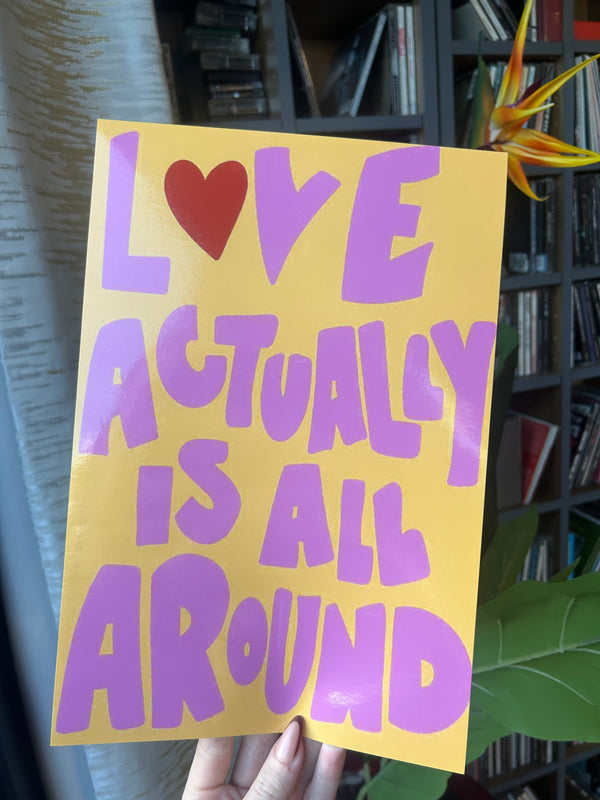 LOVE
ACTUALLY
IS ALL
AROUND